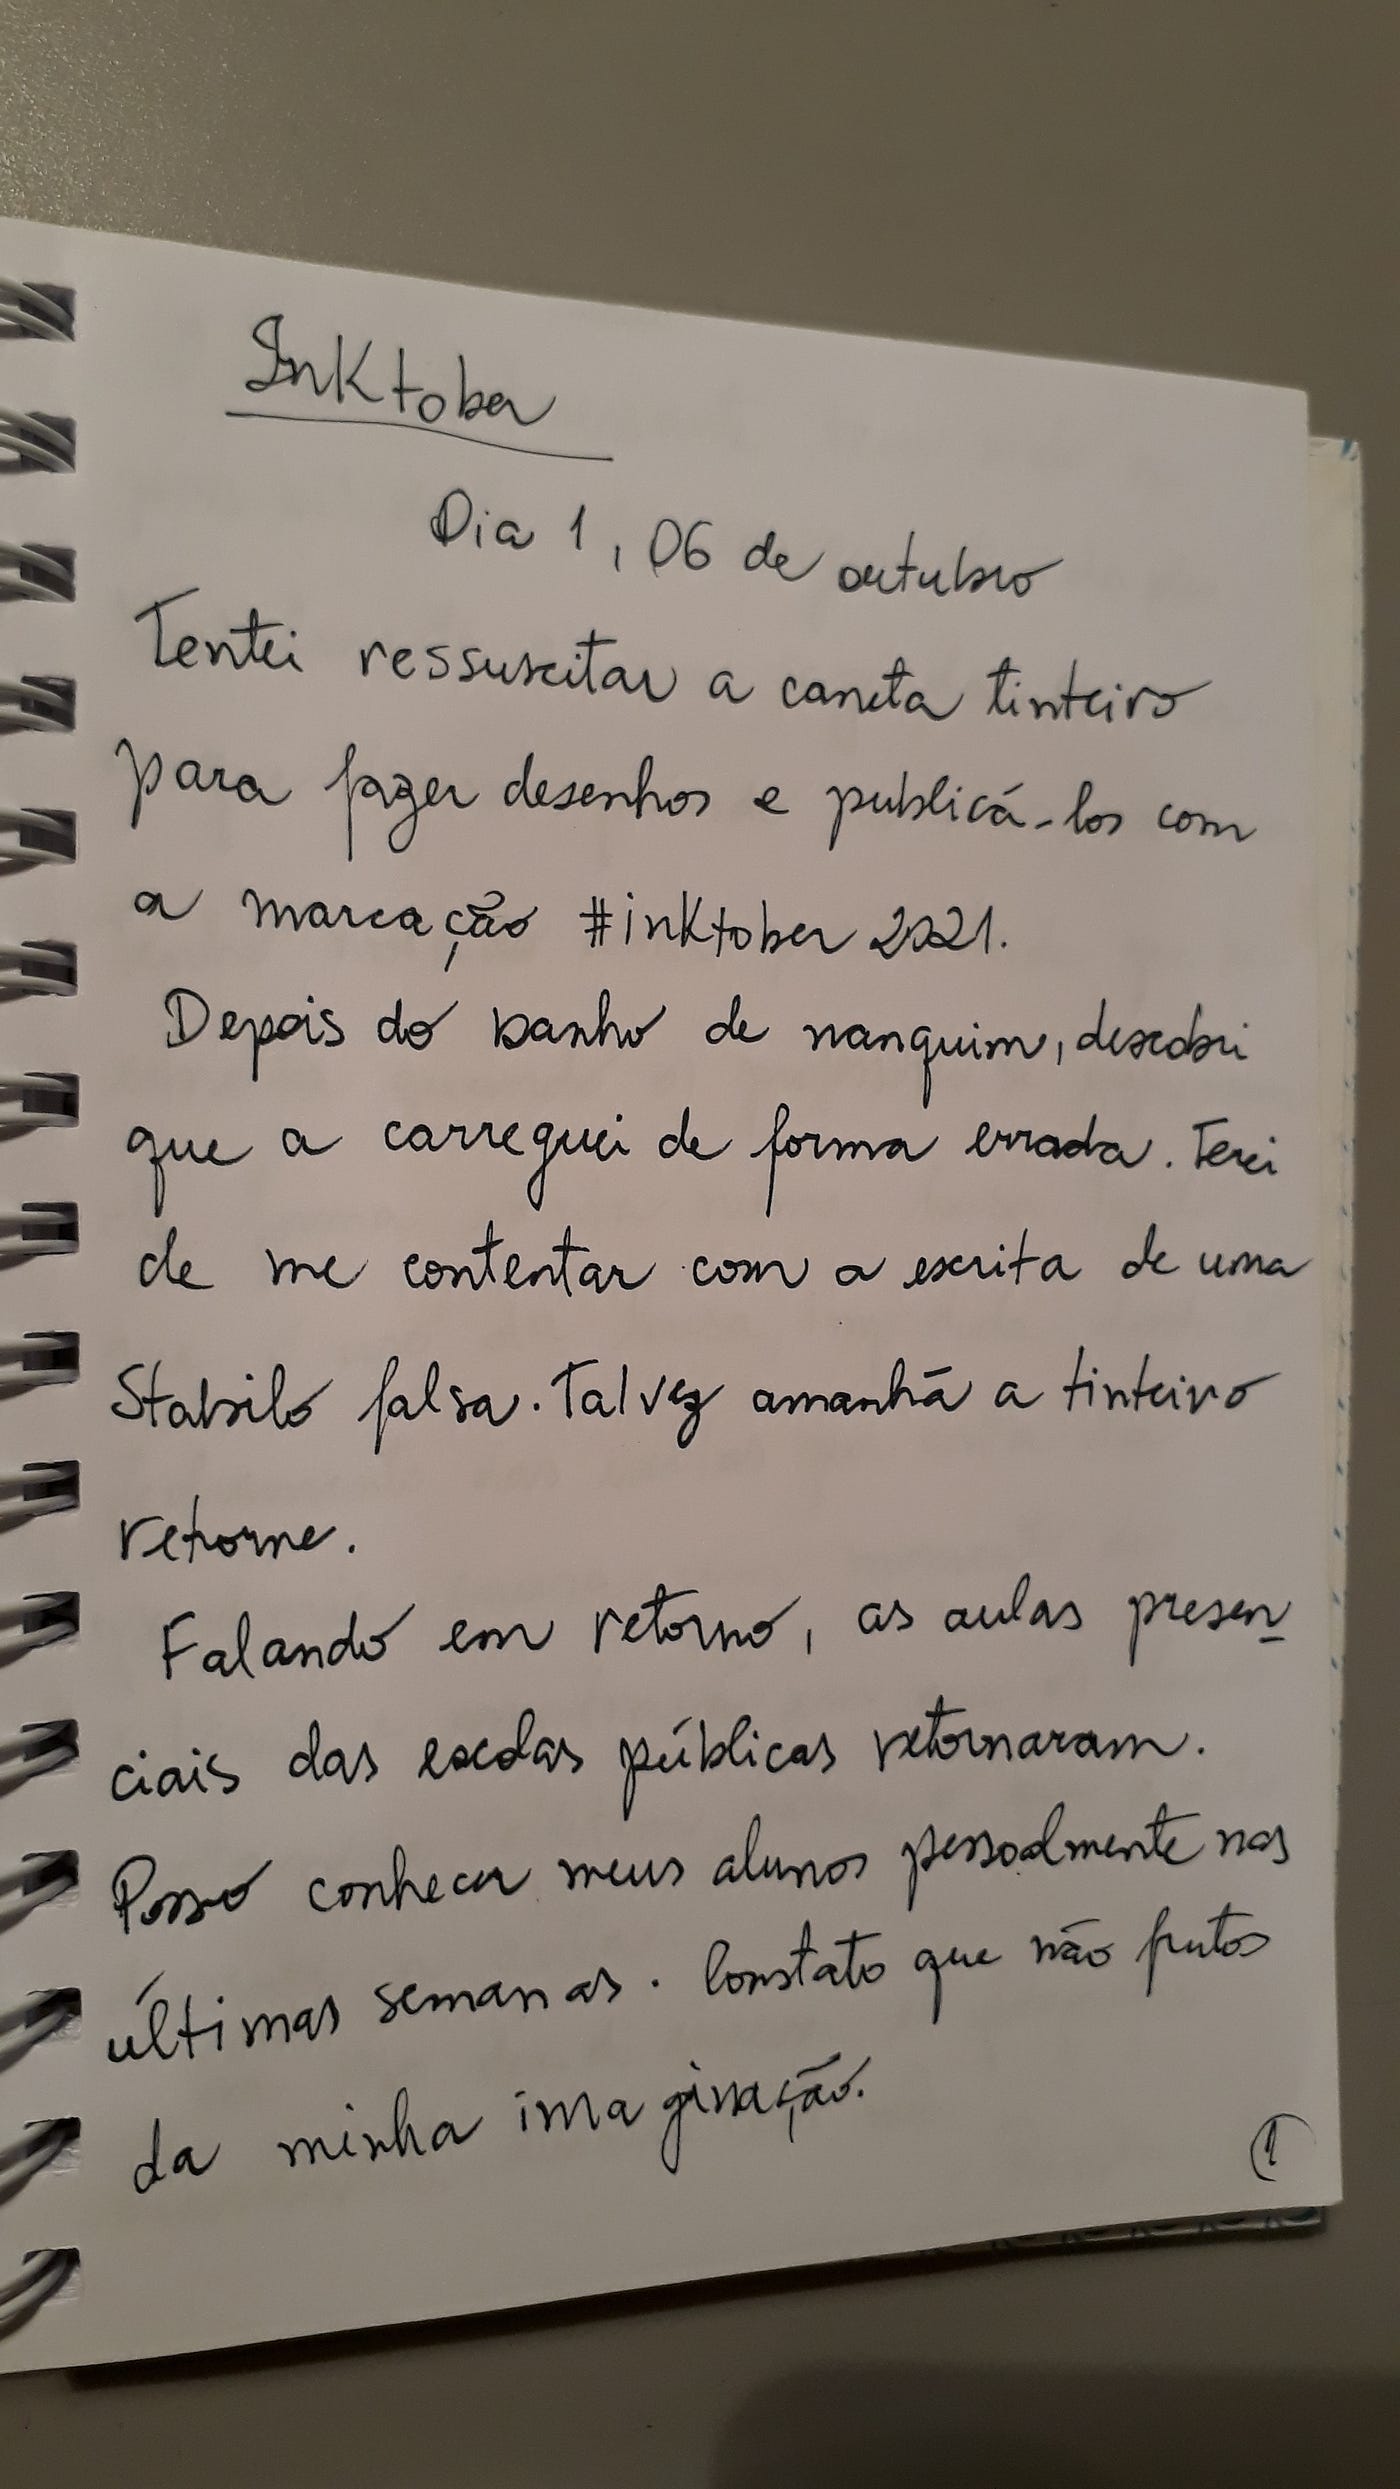 Inktober
Dia 1, 06 de outubro
Tentei ressuscitar a caneta tinteiro
para fazer desenhos e publicá-los com
a marcação #inktober 2021.
Depois do banho de nanquim, descobri
que a carreguei de forma errada. Terei
de me contentar com a escrita de uma
Stabilo falsa. Talvez amanhã a tinteiro
retorne.
Falando em retorno, as aulas presen-
ciais das escolas públicas retornaram.
Posso conhecer meus alunos pessoalmente nas
últimas semanas. Constato que não frutos
da minha imaginação.
1